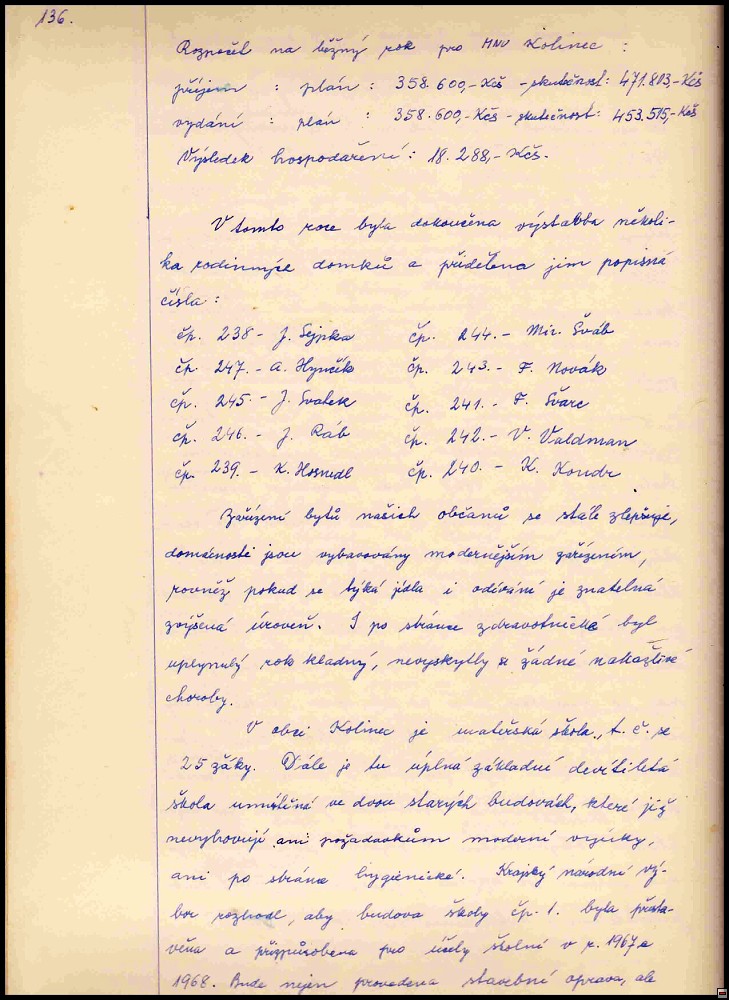 136.
Rozpočet na běžný rok pro MNV Kolinec :
příjem : plán : 358.600,- Kčs - skutečnost: 471.803,- Kčs
vydání : plán : 358.600,- Kčs - skutečnost: 453.515,- Kčs
Výsledek hospodaření : 18.288,- Kčs.
V tomto roce byla dokončena výstavba několi-
ka rodinných domků a přidělena jim popisná
čísla :
čp. 238 - J. Sejpka čp. 244. - Mir. Šváb
čp. 247. - A. Hynčík čp. 243. - F. Novák
čp. 245. - J. Svatek čp. 241. - F. Švarc
čp. 246. - J. Ráb čp. 242. - V. Valdman
čp. 239. - K. Hosnedl čp. 240. - K. Koudr
Zařízení bytů našich občanů se stále zlepšuje,
domácnosti jsou vybavovány modernějším zařízením,
rovněž pokud se týká jídla i odívání je znatelná
zvýšená úroveň. I po stránce zdravotnické byl
uplynulý rok kladný, nevyskytly se žádné nakažlivé
choroby.
V obci Kolinec je mateřská škola, t. č. se
25 žáky. Dále je tu úplná základní devítiletá
škola umístěná ve dvou starých budovách, které již
nevyhovují ani požadavkům moderní výuky,
ani po stránce hygienické. Krajský národní vý-
bor rozhodl, aby budova školy čp. 1. byla přesta-
věna a přizpůsobena pro účely školní v r. 1967 a
1968. Bude nejen provedena stavební oprava, ale